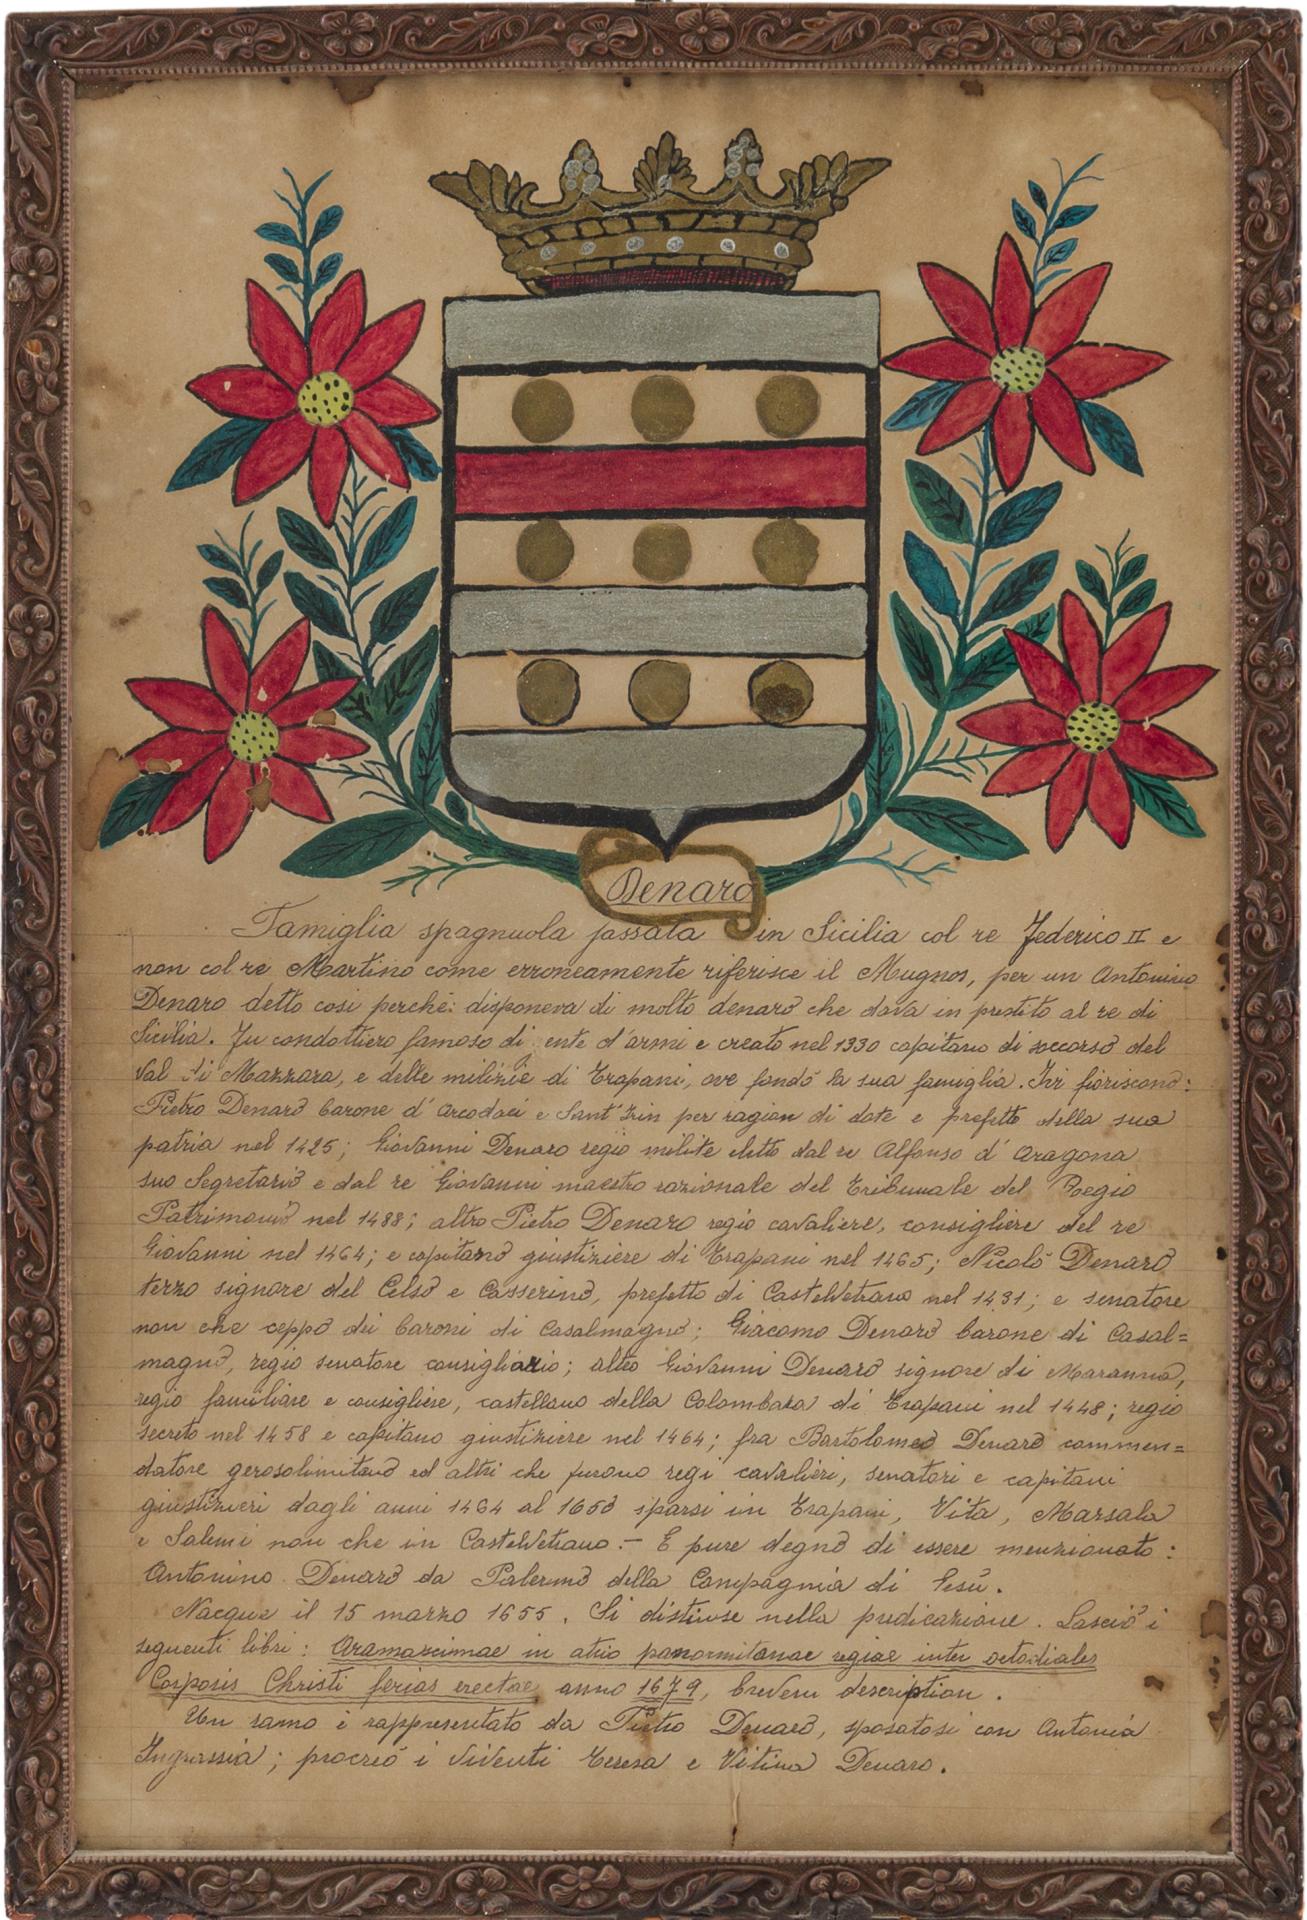 Denaro
Famiglia spagnuola passata in Sicilia col re Federico II e
non col re Martino come erroneamente riferisce il Mugnos, per un Antonino
Denaro detto cosi perché: disponeva di molto denaro che dava in prestito al re di
Sicilia. Fu condottiero famoso di ente d'armi e creato nel 1330 capitano di soccorso del
Val di Mazzara, e delle milizie di Trapani, ove fondò la sua famiglia. Ivi fioriscono:
Pietro Denaro barone d'Arcodaci e Sant'Irin per ragion di dote e prefetto della sua
patria nel 1425; Giovanni Denaro regio milite eletto dal re Alfonso d'Aragona
suo Segretario e dal re Giovanni maestro razionale del Tribunale del Regio
Patrimonio nel 1488; altro Pietro Denaro regio cavaliere, consigliere del re
Giovanni nel 1464; e capitano giustiziere di Trapani nel 1465; Nicolò Denaro
terzo signore del Celso e Casserino, prefetto di Castelvetrano nel 1431; e senatore
non che ceppo dei baroni di Casalmagno; Giacomo Denaro barone di Casal=
magno, regio senatore consigliario; altro Giovanni Denaro signore di Maranna,
regio familiare e consigliere, castellano della Colombara di Trapani nel 1448; regio
secreto nel 1458 e capitano giustiziere nel 1464; fra Bartolomeo Denaro commen=
datore gerosolimitano ed altri che furono regi cavalieri, senatori e capitani
giustizieri dagli anni 1464 al 1650 sparsi in Trapani, Vita, Marsala
e Salemi non che in Castelvetrano.- E pure degno di essere menzionato:
Antonino Denaro da Palermo della Compagnia di Gesù.
Nacque il 15 marzo 1655. Si distinse nella predicazione. Lasciò i
seguenti libri: Aramascimae in atrio panormitanae regiae inter octodiales
Corporis Christi ferias erectae anno 1679, brevem description.
Un ramo è rappresentato da Pietro Denaro, sposatosi con Antonia
Ingrassia; procreò i viventi Teresa e Vitina Denaro.